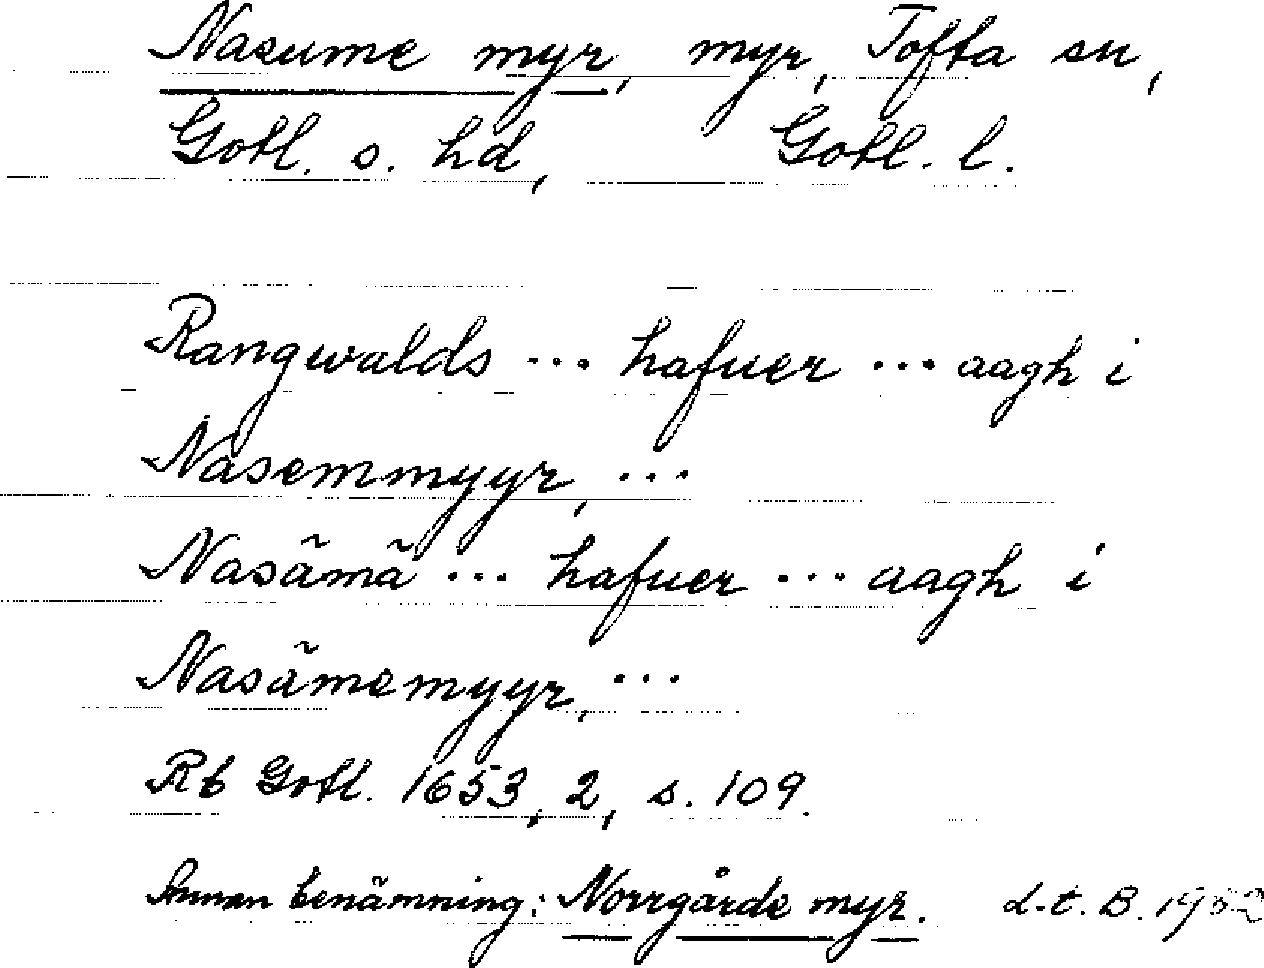 Nasume myr, myr, Tofta sn,
Gotl. s. hd, Gotl. l.
Rangwalds ... hafuer ... aagh i
Nasemmyyr, ...
Nasãmã ... hafuer ... aagh i
Nasãmemyyr, ...
Rb Gotl. 1653, 2, s. 109.
Annan benämning: Norrgårde myr. d.t. B. 1952